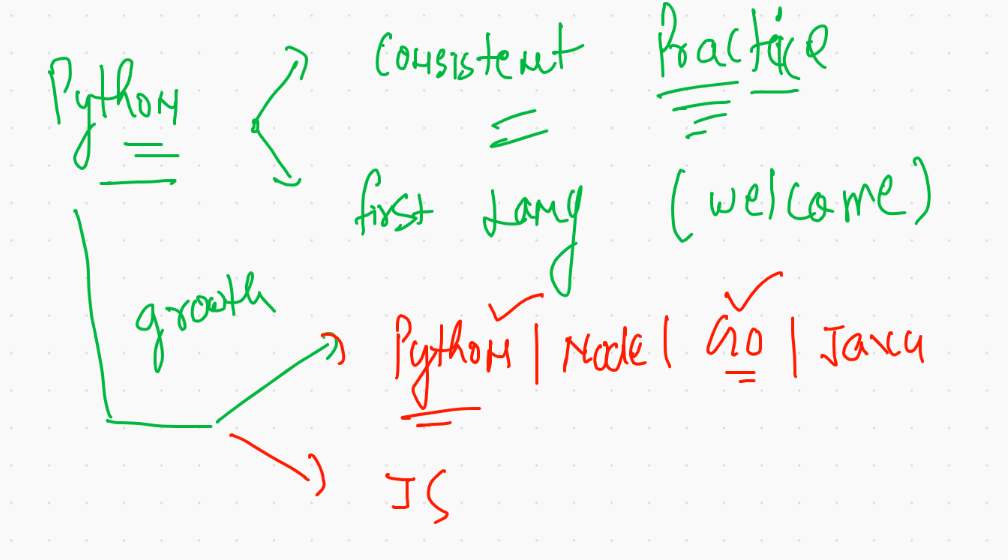 Python
Consistent Practice
first Lang (welcome)
growth
Python | Node | GO | Java
JS